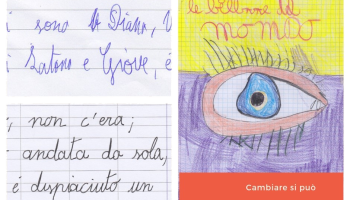 sono la Diana,
Satana e Giove, e
, non c'era;
andata da sola,
è dispiaciuto un
le bellezze del
MOMDO
Cambiare si può